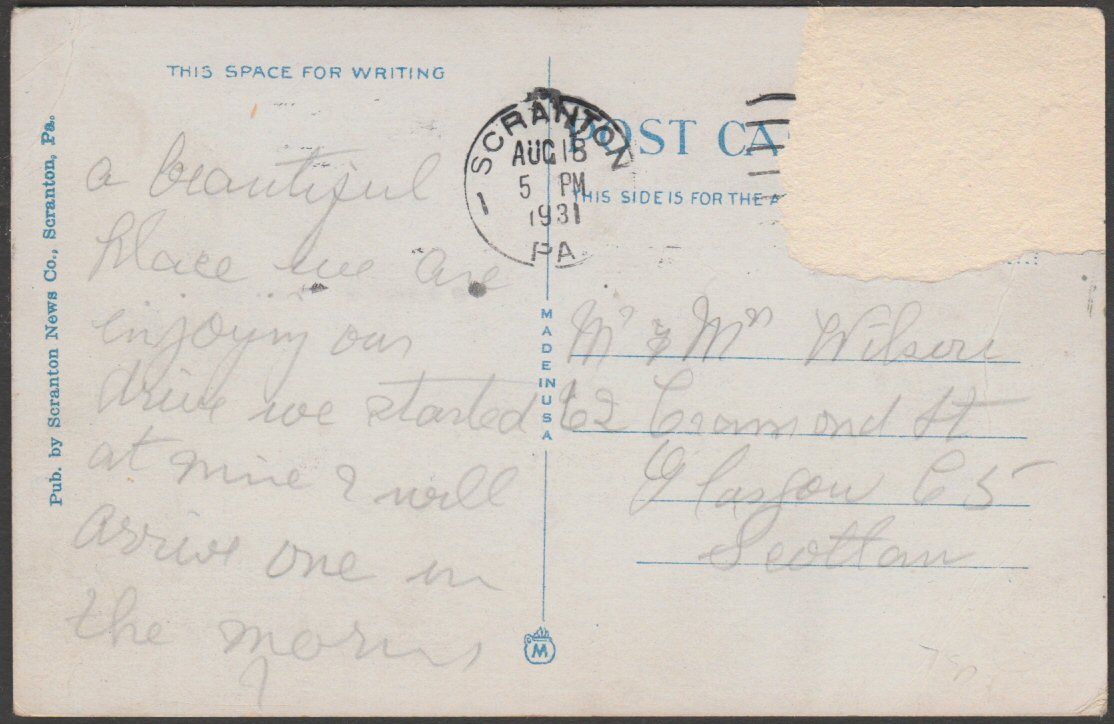 THIS SPACE FOR WRITING
Pub. by Scranton News Co., Scranton, Pa.
a beautiful
place we are
enjoyin our
drive we started
at nine & will
arrive one in
the morins
SCRANTON
AUG 18
5 PM
1931
PA
POST CA
THIS SIDE IS FOR THE A
MADE IN USA
M
Mr & Mrs Wilson
62 Cramond St
Glasgow C 5
Scotlan